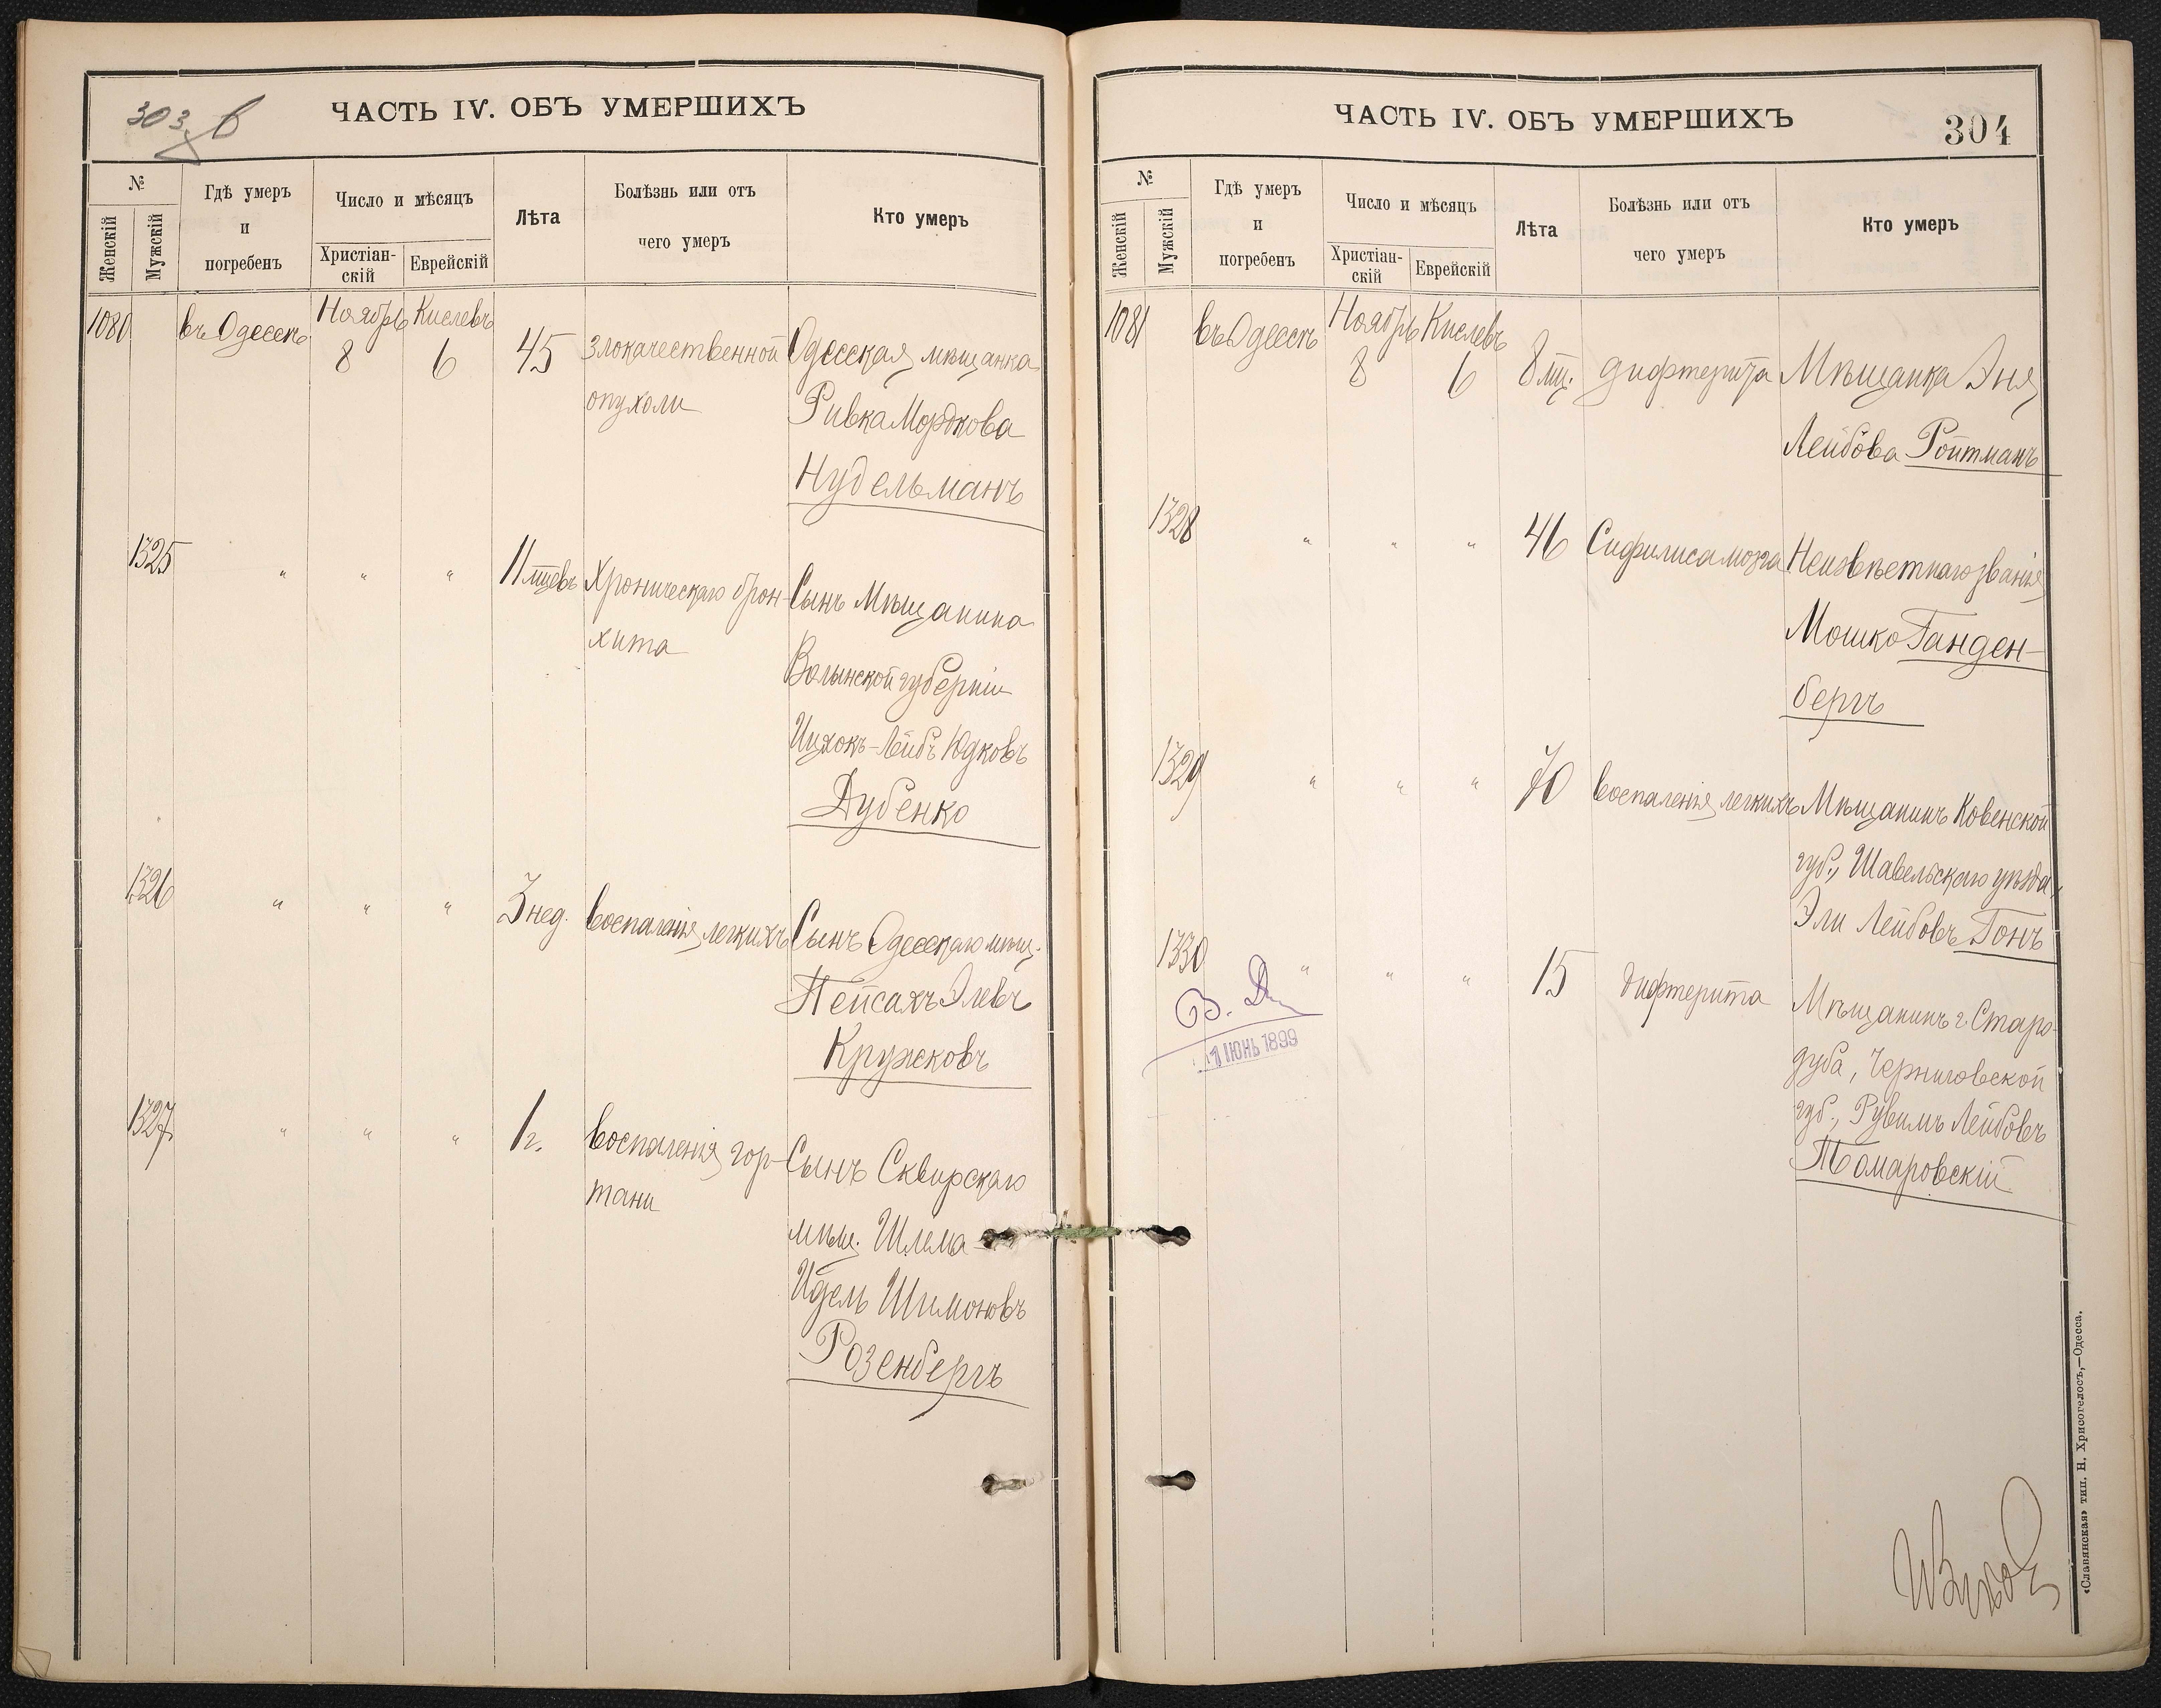 303
ЧАСТЬ IV. ОБЪ УМЕРШИХЪ
№
Женскій
Мужскій
Гдѣ умеръ
и
погребенъ
Число и мѣсяцъ
Христіан-
скій
Еврейскій
Лѣта
Болѣзнь или отъ
чего умеръ
Кто умеръ
1080 въ Одессѣ Ноябрь Кислевъ
8 6 45 злокачественной Одесская мѣщанка
опухоли Ривка Мордкова
Нудельманъ
1325 " " " 11 мцевъ Хроническаго брон- Сынъ Мѣщанина
хита Волынской губерніи
Ицхокъ-Лейбъ Юдковъ
Дубенко
1326 " " " 3 нед. воспаленія легкихъ Сынъ Одесскаго мѣщ.
Пейсахъ Элевъ
Кружковъ
1327 " " " 1 г. воспаленія гор- Сынъ Сквирскаго
тани мѣщ. Шлема-
Идель Шимоновъ
Розенбергъ
ЧАСТЬ IV. ОБЪ УМЕРШИХЪ
304
№
Женскій
Мужскій
Гдѣ умеръ
и
погребенъ
Число и мѣсяцъ
Христіан-
скій
Еврейскій
Лѣта
Болѣзнь или отъ
чего умеръ
Кто умеръ
1081 въ Одессѣ Ноябрь Кислевъ
8 6 8 мц. дифтерита Мѣщанка Эня
Лейбова Ройтманъ
1328 " " " 46 Сифилиса мозга Неизвѣстнаго званія
Мошко Ганден-
бергъ
1329 " " " 70 воспаленія легкихъ Мѣщанинъ Ковенской
губ., Шавельскаго уѣзда,
Эли Лейбовъ Гонъ
1330 " " " 15 дифтерита Мѣщанинъ г. Старо-
дуба, Черниговской
губ., Рувимъ Лейбовъ
Томаровскій
ІЮНЬ 1899
«Славянская» тип. Н. Хрисогелосъ,—Одесса.